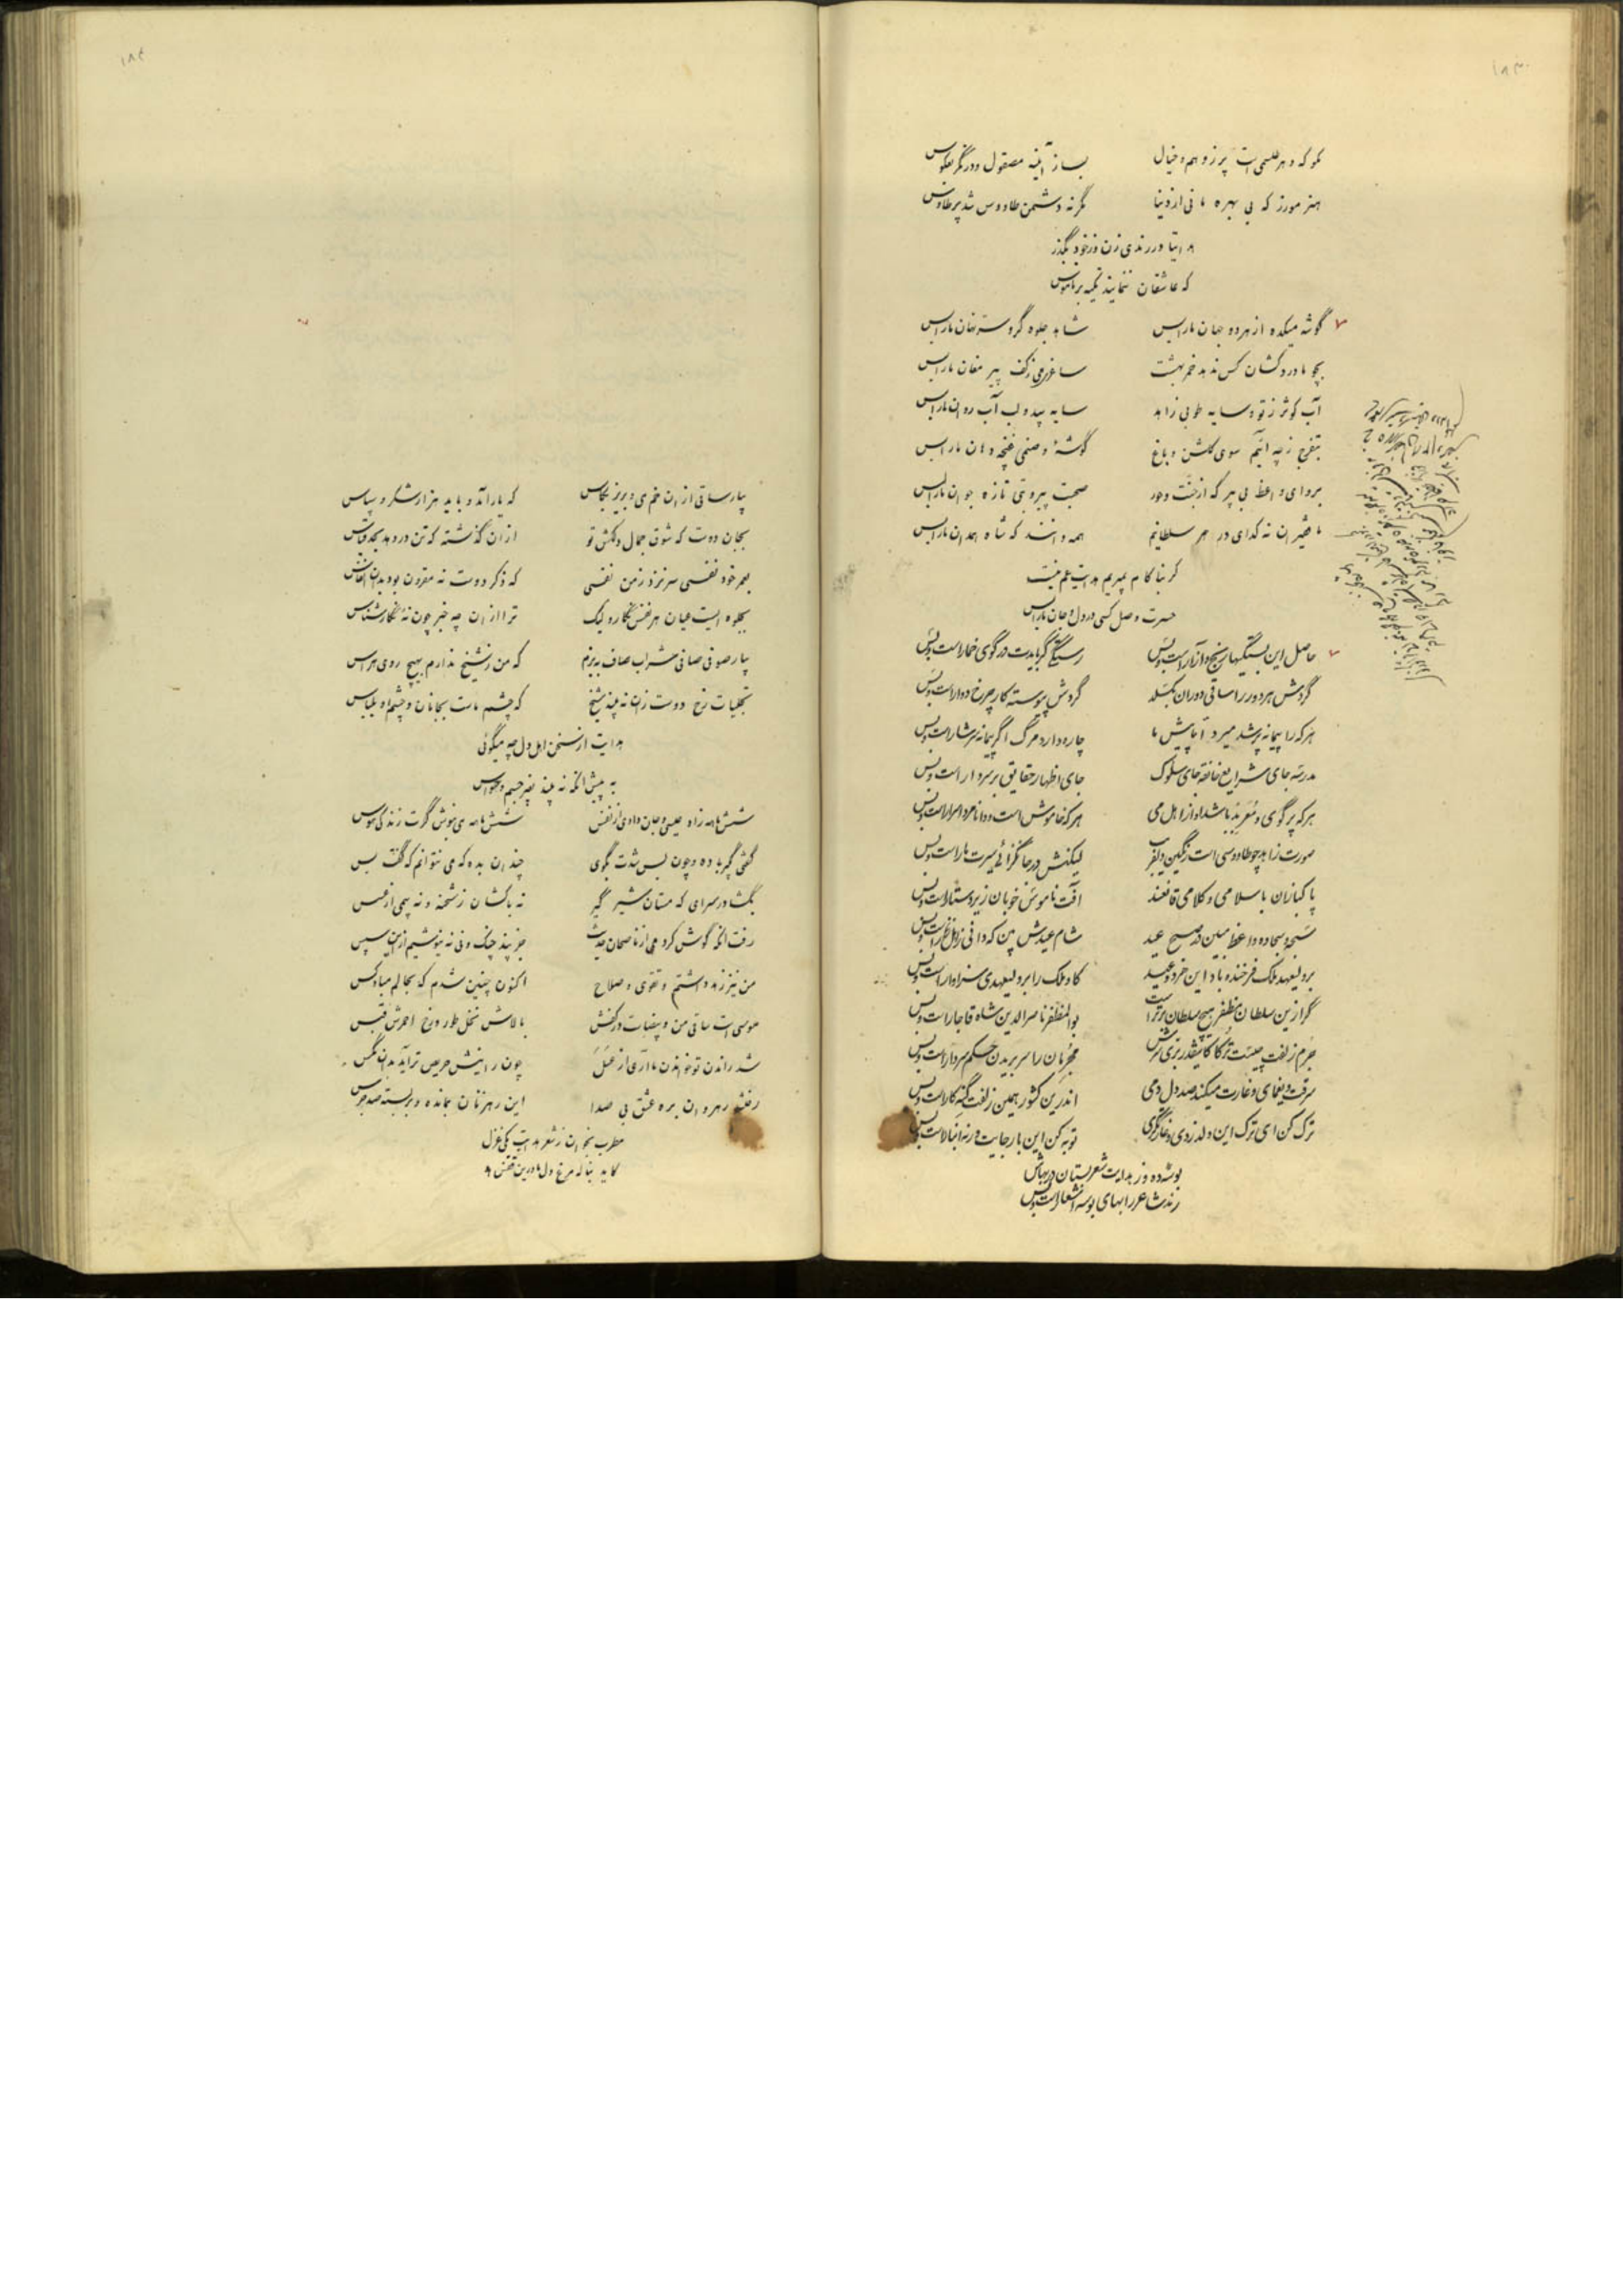 ۱۸۳
مگو که دهر طلسمی است پر ز وهم و خیال بساز آینه مصقول و درنگر معکوس
هنر مورز که بی بهره مانی از دنیا مگر نه دشمن طاووس شد پر طاوس
هدایتا در رندی زن و ز خود بگذر
که عاشقان ننمایند تکیه بر ناموس
گوشه میکده از هر دو جهان ما را بس شاهد جلوه گر و ستر نهان ما را بس
بجز ما دردکشان کس ندهد خمر بهشت ساغر می ز کف پیر مغان ما را بس
آب کوثر ز تو و سایه طوبی زاهد سایه بید و لب آب روان ما را بس
بتفرج ز چه آئیم سوی گلشن و باغ گوشهٔ و صنمی غنچه دهان ما را بس
برو ای واعظ بی پیر که از جنت و حور صحبت پیر و می تازه جوان ما را بس
ما فقیران نه گدای در هر سلطانیم همه دانند که شاه همدان ما را بس
گر بناکام بمیریم هدایت غم نیست
حسرت وصل کسی در دل و جان ما را بس
حاصل این بستگیها رنج و آزار است و بس رستگی گر بایدت در کوی خمار است و بس
گردش هر دور را ساقی دوران بگسلد گردش پیوسته کار چرخ دوار است و بس
هر که را پیمانه پر شد میرد اما پیش ما چاره دارد مرگ اگر پیمانه سرشار است و بس
مدرسه جای شرایع خانقه جای سلوک جای اظهار حقایق بر سر دار است و بس
هر که پر گوی و معربد باشد او از اهل می هر که خاموش است و دانا مرد اسرار است و بس
صورت زاهد چو طاووسی است رنگین دلفریب لیکنش در جانگزائی سیرت مار است و بس
پاکبازان با سلامی و کلامی قانعند آفت ناموس خوبان زیر دستار است و بس
سبحه و سجاده واعظ مبین در صبح عید شام عیدش بین که دانی
بر ولیعهد ملک فرخنده باد این خرد و عید کاو ملک را بر ولیعهدی سزاوار است و بس
گر ازین سلطان مظفر هیچ سلطان برتر است بوالمظفر ناصرالدین شاه قاجار است و بس
جرم زلفت چیست ترکا کاینقدر بری سرش مجرمان را سر بریدن حکم سردار است و بس
سرقت و یغمای و غارت میکند صد دل دمی اندرین کشور همین زلفت گنه کار است و بس
ترک کن ای ترک این دلدزدی و غارتگری توبه کن این بار جایت ورنه انبار است و بس
بوسه ده وز هدایت شعر بستان در بهاش
رند شاعر را بهای بوسه اشعار است و بس
۱۸۴
بیار ساقی از آن خم می و بریز بکاس که یار آمد و باید هزار شکر و سپاس
بجان دوست که شوق جمال دلکش تو از آن گذشته که تن در دهد بحد قیاس
بعمر خود نفسی سر نزد ز من نفسی که ذکر دوست نه مقرون بود بدان انفاس
بجلوه ایست عیان هر نفس نگار و لیک ترا از آن چه خبر چون نهٔ نگارشناس
بیار صوفی صافی شراب صاف به بزم که من ز شیخ ندارم بهیچ روی هراس
تجلیات رخ دوست زان نه بیند شیخ که چشم ماست بجانان و چشم او بلباس
هدایت از سخن اهل دل چه میگوئی
به پیش آنکه نه بیند بغیر جسم و حواس
شش ماهه زاد عیسی و جان دادی از نفس شش ماهه می بنوش گرت زندگی هوس
گفتی گیر باده و چون بس شدت بگوی چندان بده که می نتوانم که گفت بس
بگشا در سرای که مستان شیر گیر نه باکشان ز شحنه و نه بیمی از عسس
رفت آنکه گوش کردمی از ناصحان حدیث جز پند چنگ و نی نه نیوشیم ازین سپس
من نیز زهد داشتم و تقوی و صلاح اکنون چنین شدم که بحالم مباد کس
موسی است ساقی من و بیضاست در کفش بالاش نخل طور و رخ احمرش قبس
شد راندن تو خواندن ما آری از عسل چون رانیش حریص تر آید بدان مگس
رفتند رهروان بره عشق بی صدا این رهزنان بمانده و بربسته صد جرس
مطرب بخوان ز شعر هدایت یکی غزل
کاید بناله مرغ دل ما درین قفس